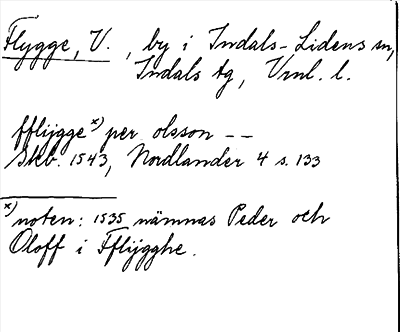 Flygge, V. , by i Indals-Lidens sn,
Indals tg, Vrnl. l.
fflijgge x) per olsson --
Skb. 1543, Nordlander 4 s. 133
x) noten: 1535 nämnas Peder och
Oloff i Fflijgghe.